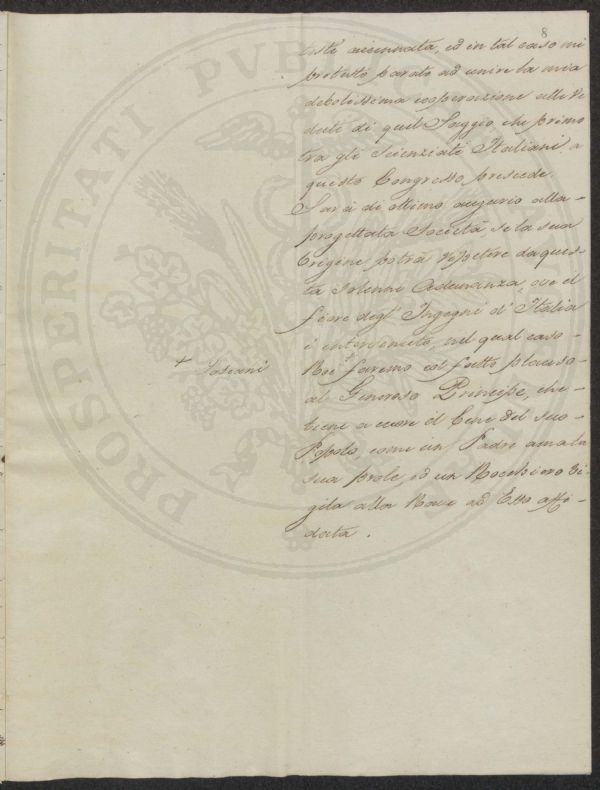 8
testè accennata, ed in tal caso mi
protesto parato ad unire la mia
debolissima cooperazione alle Ve
dute di quel Saggio, che primo
tra gli Scienziati Italiani a
questo Congresso presiede.
Sarà di ottimo augurio alla
progettata Società se la sua
Origine potrà ripetere da ques-
ta solenne Adunanza, ove il
fiore degl' Ingegni d' Italia
è intervenuto, nel qual caso
Noi + faremo col fatto plauso
+ Toscani
al Generoso Principe, che
tiene a cuore il bene del suo
Popolo, come un Padre ama la
sua prole, ed un Nocchiero vi-
gila alla Nave ad Esso affi-
data.
PROSPERITATI PUBLICAE